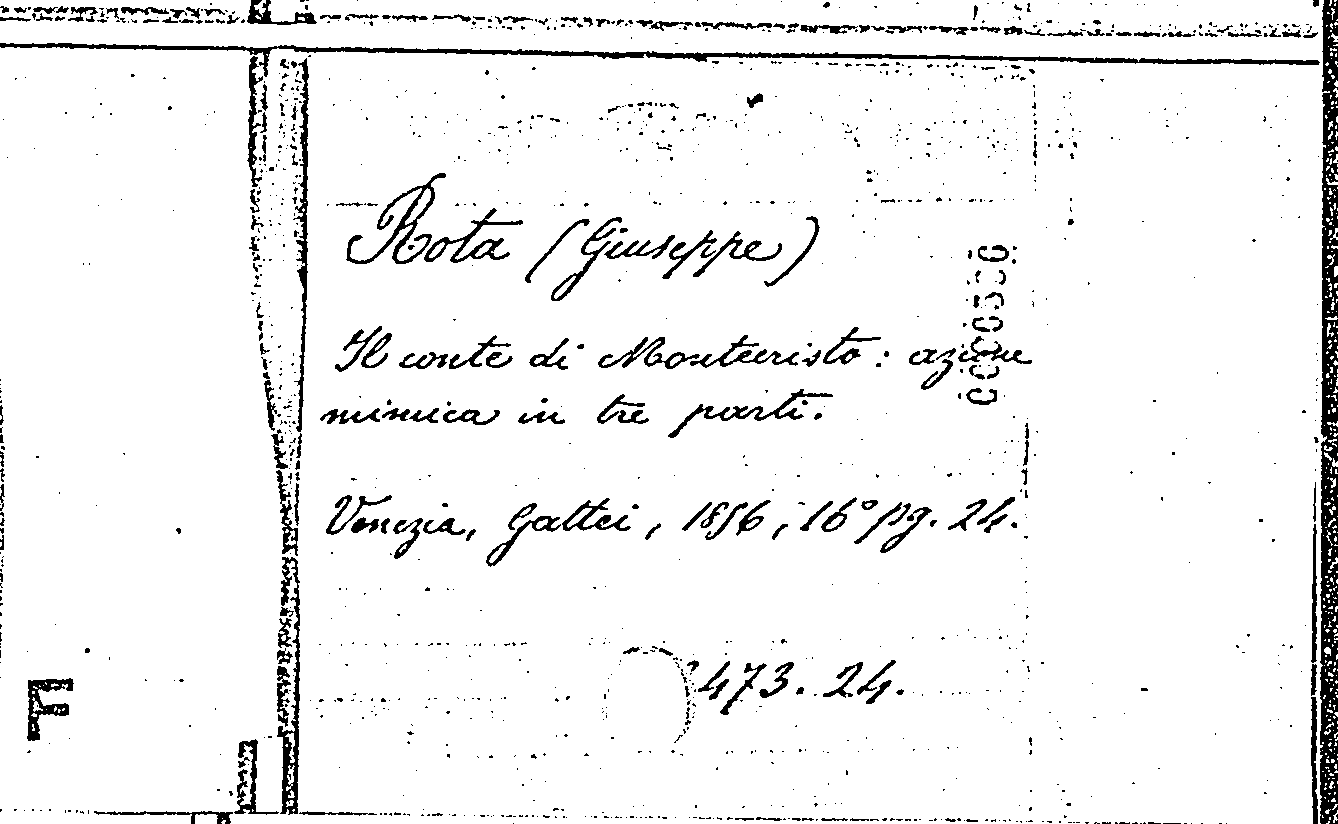 Rota (Giuseppe)
Il conte di Montecristo: azione
mimica in tre parti.
Venezia, Gattei, 1856; 16° pg. 24.
473. 24.
F